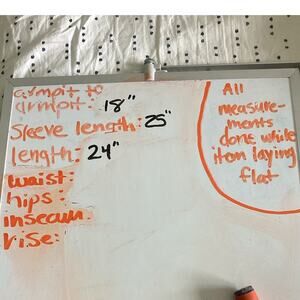 armpit to
armpit: 18"
Sleeve length: 25"
length: 24"
waist:
hips:
inseam:
rise:
All
measure-
ments
done while
item laying
flat